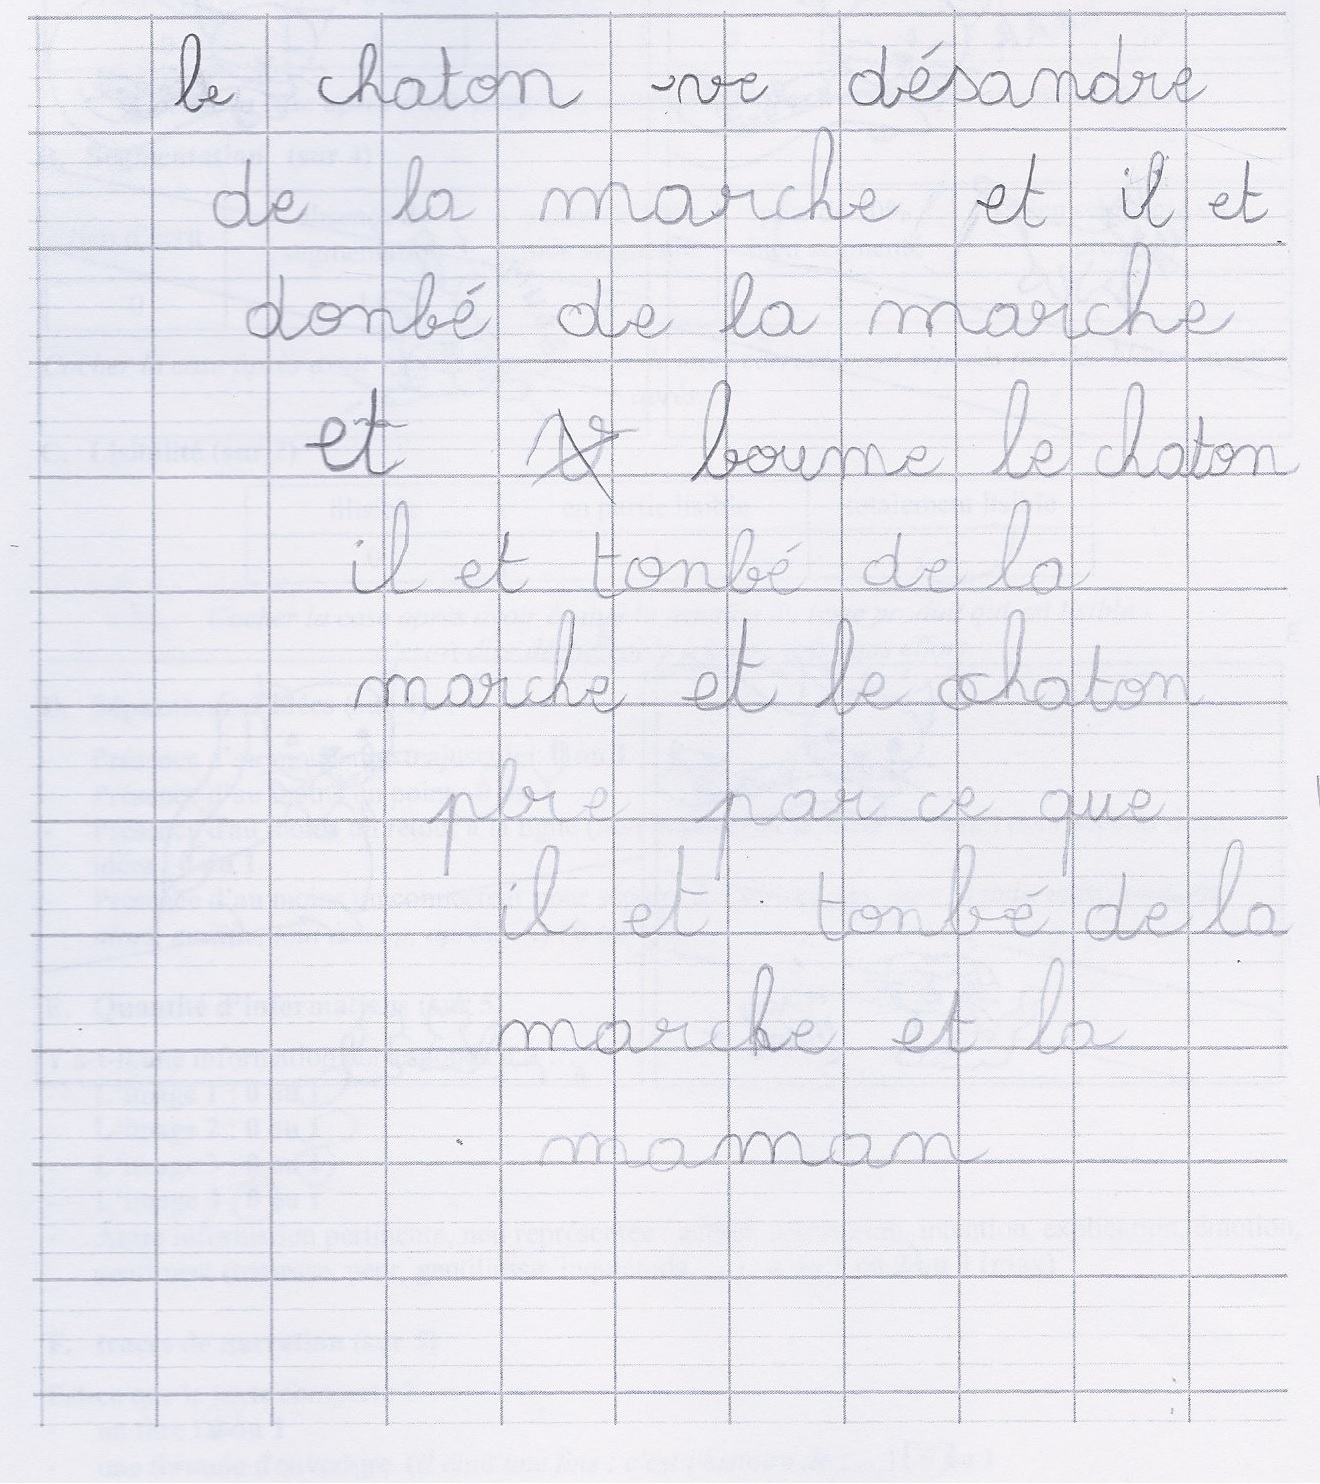 le chaton ve désandre
de la marche et il et
donbé de la marche
et boume le chaton
il et tonbé de la
marche et le chaton
plre par ce que
il et tonbé de la
marche et la
maman